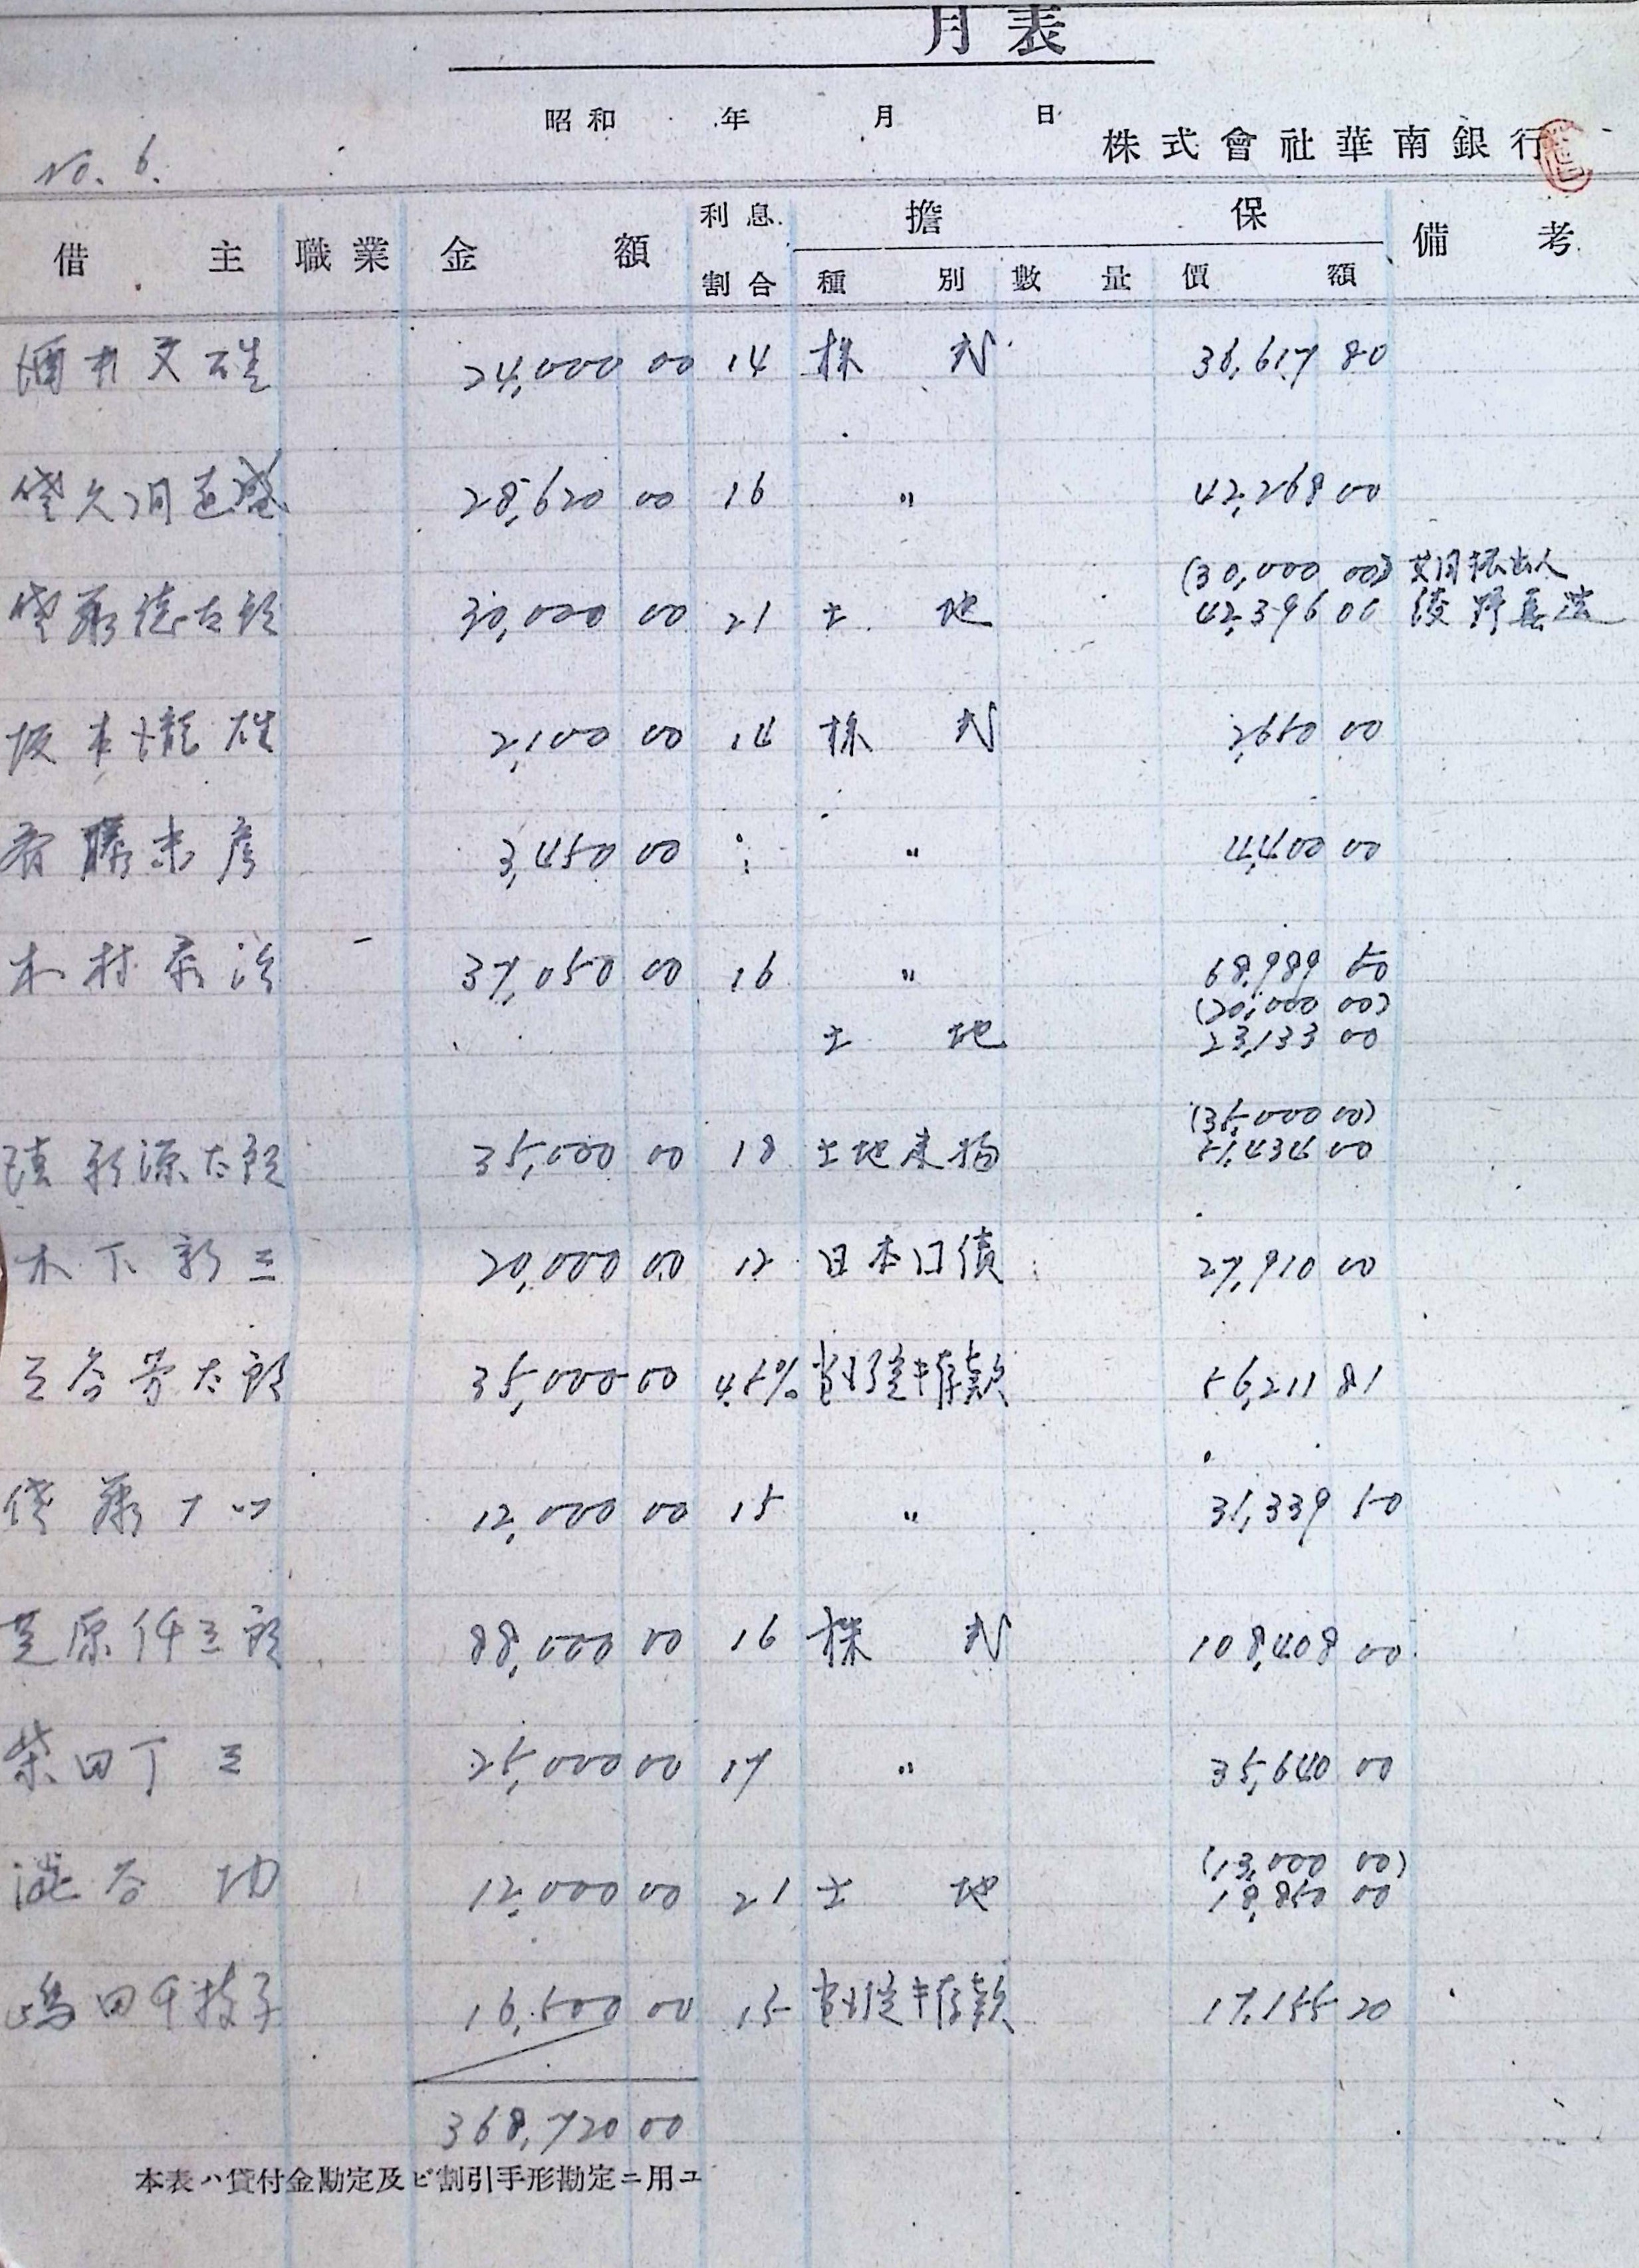 月表
昭和 年 月 日
株式會社華南銀行
No. 6.
借主 職業 金額 利息割合 擔保 備考
種別 數量 價額
24,000 00 14 株式 36,617 80
28,620 00 16 〃 42,268 00
(30,000 00) 共同振出人
30,000 00 21 土地 42,396 00
2,100 00 14 株式 2,650 00
斉藤末彦 3,450 00 : 〃 4,400 00
木村泰治 37,050 00 16 〃 68,989 50
(20,000 00)
土地 23,133 00
(35,000 00)
35,000 00 18 土地建物 51,434 00
木下新三 20,000 00 12 日本口債 27,910 00
三谷芳太郎 35,000 00 4.5% 56,211 81
12,000 00 15 〃 31,339 50
芝原仟三郎 88,000 00 16 株式 108,408 00
柴田丁三 25,000 00 17 〃 35,640 00
(13,000 00)
澁谷功 12,000 00 21 土地 18,850 00
嶋田千枝子 16,500 00 15 17,155 20
368,720 00
本表ハ貸付金勘定及ビ割引手形勘定ニ用ユ